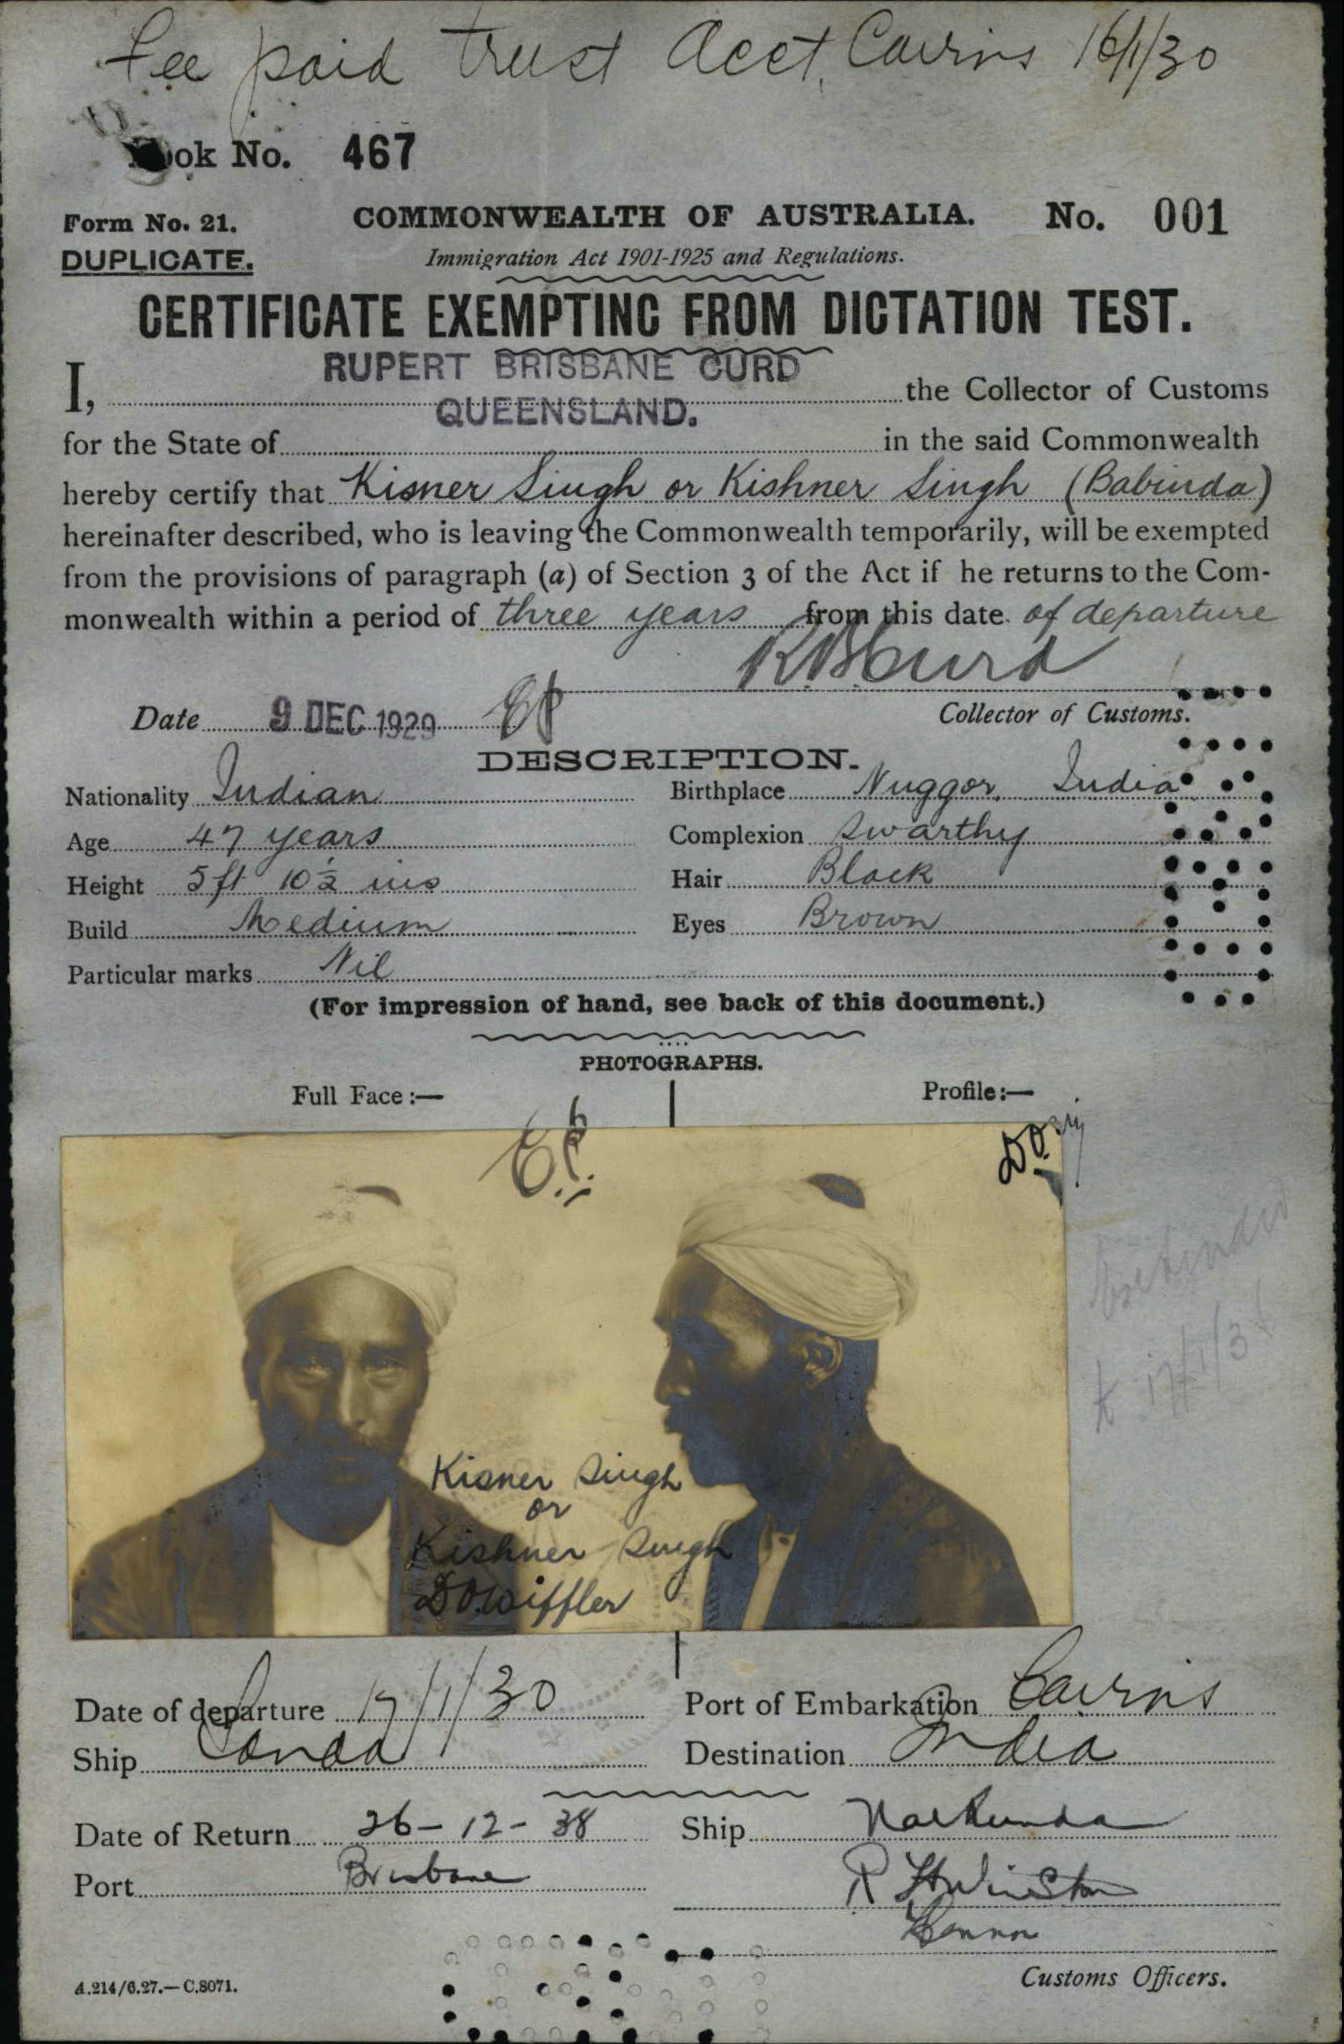 Fee paid trust Acct, Cairns 16/1/30
ook No. 467
Form No. 21. COMMONWEALTH OF AUSTRALIA. No. 001
DUPLICATE. Immigration Act 1901-1925 and Regulations.
CERTIFICATE EXEMPTING FROM DICTATION TEST.
I, RUPERT BRISBANE CURD the Collector of Customs
for the State of QUEENSLAND. in the said Commonwealth
hereby certify that Kisner Singh or Kishner Singh (Babinda)
hereinafter described, who is leaving the Commonwealth temporarily, will be exempted
from the provisions of paragraph (a) of Section 3 of the Act if he returns to the Com-
monwealth within a period of three years from this date of departure
R.B. Curd
Date 9 DEC 1929 Collector of Customs.
DESCRIPTION.
Nationality Indian Birthplace Nuggor, India
Age 47 years Complexion Swarthy
Height 5ft 10½ ins Hair Black
Build Medium Eyes Brown
Particular marks Nil
(For impression of hand, see back of this document.)
PHOTOGRAPHS.
Full Face:— Profile:—
Kisner Singh
or
Kishner Singh
Date of departure 17/1/30 Port of Embarkation Cairns
Ship Destination India
Date of Return 26-12-38 Ship Narkunda
Port Brisbane
Customs Officers.
A.214/6.27.—C.8071.